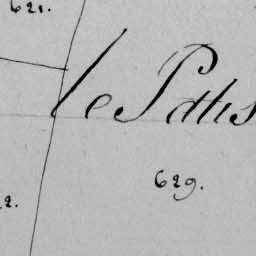 621.
le Patis
629.
2.